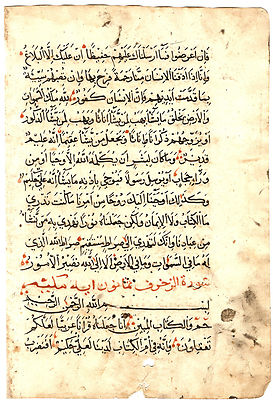 فَاِنْ اَعْرَضُوا فَمَا اَرْسَلْنَاكَ عَلَيْهِمْ حَفِيظًا اِنْ عَلَيْكَ اِلَّا الْبَلَاغُ
وَاِنَّا اِذَا اَذَقْنَا الْاِنْسَانَ مِنَّا رَحْمَةً فَرِحَ بِهَا وَاِنْ تُصِبْهُمْ سَيِّئَةٌ
بِمَا قَدَّمَتْ اَيْدِيهِمْ فَاِنَّ الْاِنْسَانَ كَفُورٌ لِلّٰهِ مُلْكُ السَّمٰوَاتِ
وَالْاَرْضِ يَخْلُقُ مَا يَشَٓاءُ يَهَبُ لِمَنْ يَشَٓاءُ اِنَاثًا وَيَهَبُ لِمَنْ يَشَٓاءُ الذُّكُورَ
اَوْ يُزَوِّجُهُمْ ذُكْرَانًا وَاِنَاثًا وَيَجْعَلُ مَنْ يَشَٓاءُ عَقِيمًا اِنَّهُ عَلِيمٌ
قَدِيرٌ وَمَا كَانَ لِبَشَرٍ اَنْ يُكَلِّمَهُ اللّٰهُ اِلَّا وَحْيًا اَوْ مِنْ
وَرَٓاءِ حِجَابٍ اَوْ يُرْسِلَ رَسُولًا فَيُوحِيَ بِاِذْنِهِ مَا يَشَٓاءُ اِنَّهُ عَلِيٌّ حَكِيمٌ
وَكَذٰلِكَ اَوْحَيْنَا اِلَيْكَ رُوحًا مِنْ اَمْرِنَا مَا كُنْتَ تَدْرِي
مَا الْكِتَابُ وَلَا الْاِيمَانُ وَلٰكِنْ جَعَلْنَاهُ نُورًا نَهْدِي بِهِ مَنْ نَشَٓاءُ
مِنْ عِبَادِنَا وَاِنَّكَ لَتَهْدِي اِلٰى صِرَاطٍ مُسْتَقِيمٍ صِرَاطِ اللّٰهِ الَّذِي
لَهُ مَا فِي السَّمٰوَاتِ وَمَا فِي الْاَرْضِ اَلَا اِلَى اللّٰهِ تَصِيرُ الْاُمُورُ
سورة الزخرف ثمانون اية مكية
بسم الله الرحمن الرحيم
حٰمٓ وَالْكِتَابِ الْمُبِينِ اِنَّا جَعَلْنَاهُ قُرْاٰنًا عَرَبِيًّا لَعَلَّكُمْ
تَعْقِلُونَ وَاِنَّهُ فِي اُمِّ الْكِتَابِ لَدَيْنَا لَعَلِيٌّ حَكِيمٌ اَفَنَضْرِبُ